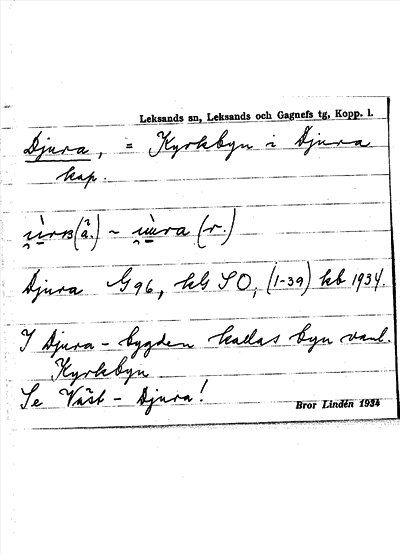 Leksands sn, Leksands och Gagnefs tg, Kopp. l.
Djura, = Kyrkbyn i Djura
kap.
~ (r.)
Djura G96, kG SO, (1-39) kb 1934.
I Djura-bygden kallas byn vanl.
Kyrkbyn
Se Väst-Djura!
Bror Lindén 1934